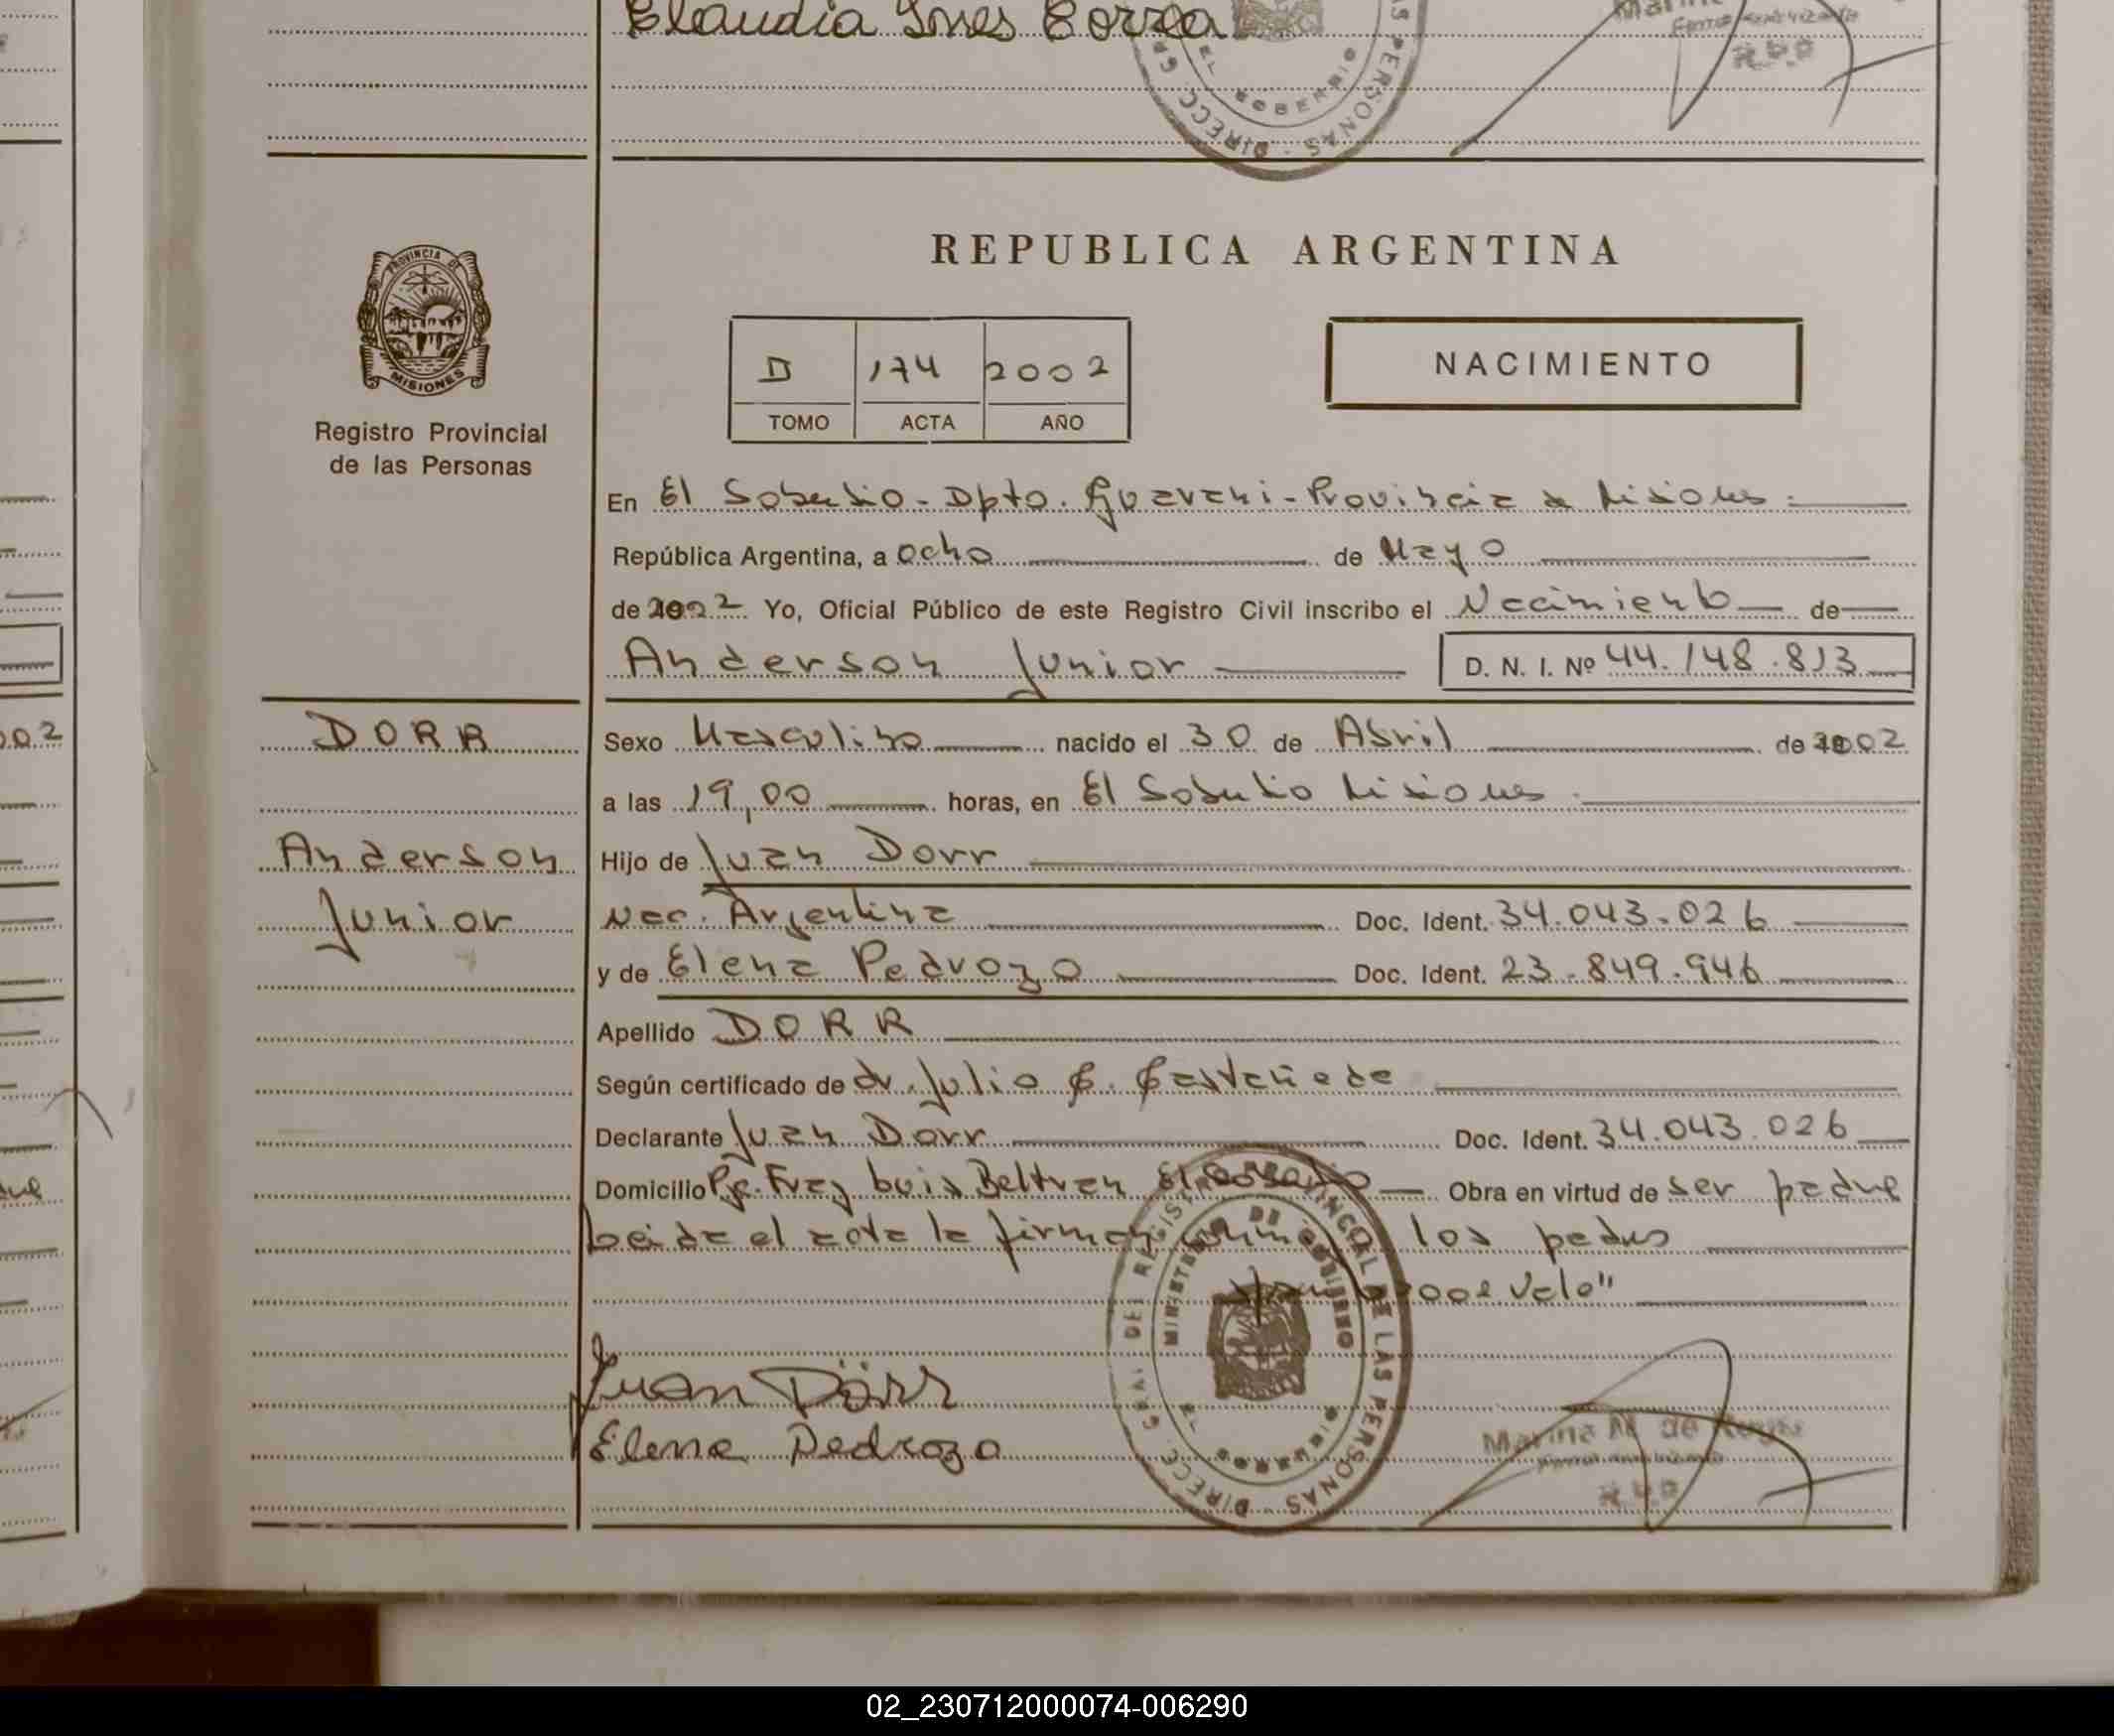 Claudia Ines Correa
PERSONAS - DIRECC
EL SOBERBIO
R.P.P
REPUBLICA ARGENTINA
PROVINCIA DE
MISIONES
Registro Provincial
de las Personas
D 174 2002
TOMO ACTA AÑO
NACIMIENTO
En El Soberbio - Dpto. Guarani - Provincia de Misiones
República Argentina, a ocho de Mayo
de 2002 Yo, Oficial Público de este Registro Civil inscribo el Nacimiento de
Anderson Junior D. N. I. Nº 44.148.813
002
DORR
Sexo Masculino nacido el 30 de Abril de 2002
a las 19,00 horas, en El Soberbio Misiones
Anderson
Hijo de Juan Dorr
Junior
Nac. Argentina Doc. Ident. 34.043.026
y de Elena Pedrozo Doc. Ident. 23.849.946
Apellido DORR
Según certificado de dr. Julio C. Castañeda
Declarante Juan Dorr Doc. Ident. 34.043.026
Domicilio Pje. Fray Luis Beltran El Soberbio Obra en virtud de ser padre
Leida el acta la firman los padres
2002 Vale"
Juan Dörr
Elena Pedrozo
DIRECC. GRAL DEL REGISTRO PROVINCIAL DE LAS PERSONAS
MINISTERIO DE GOBIERNO
EL SOBERBIO
Marina M. de
R.P.P
02_230712000074-006290